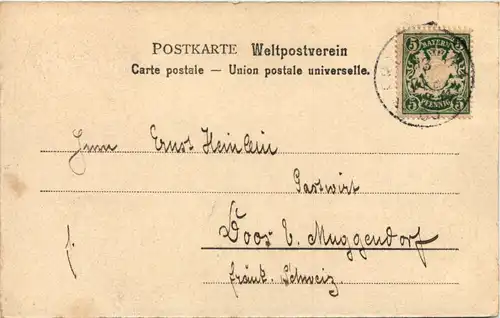 POSTKARTE Weltpostverein
Carte postale — Union postale universelle.
5 BAYERN 5
5 PFENNIG 5
Herrn Ernst Heinlein
Gastwirt
Doos b. Muggendorf
fränk. Schweiz